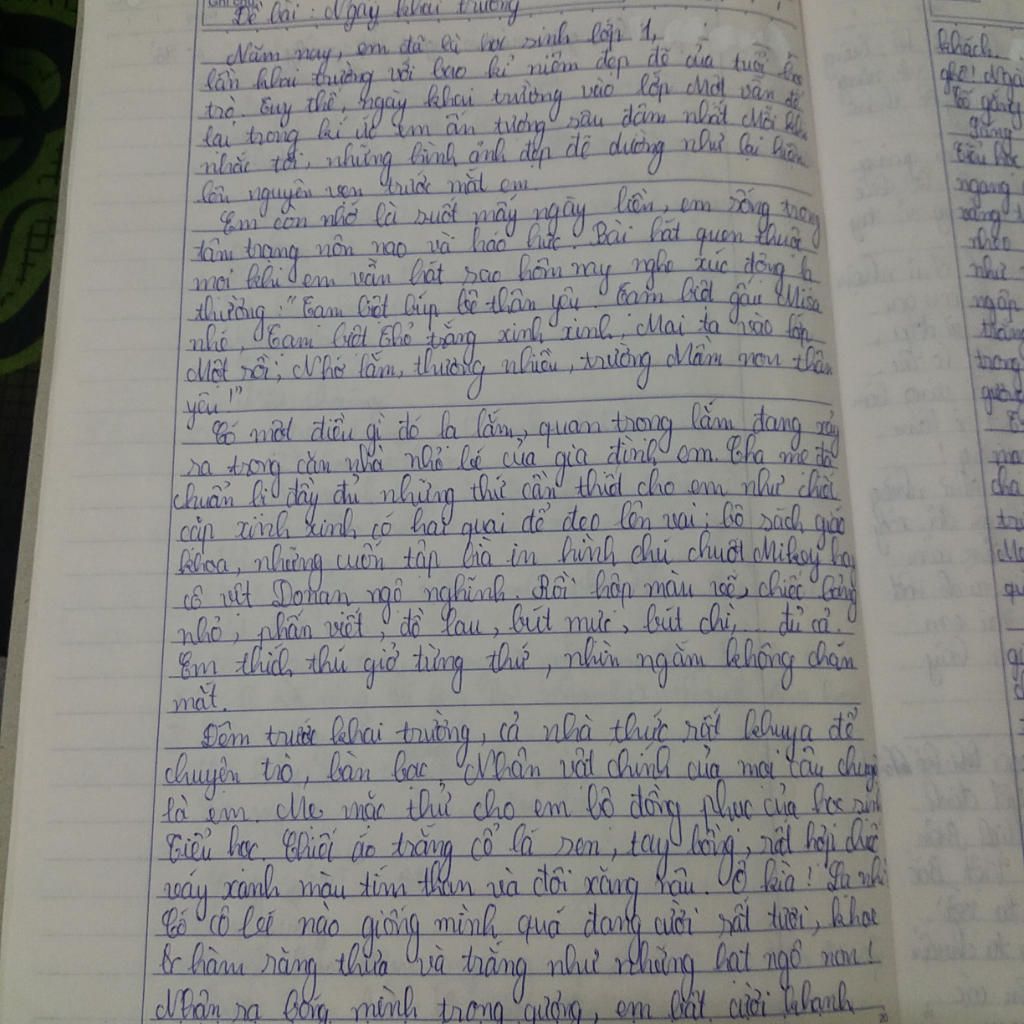 Đề bài: Ngày khai trường
Năm nay, em đã là học sinh lớp 1,
lần khai trường với bao kỉ niệm đẹp đẽ của tuổi học
trò. Tuy thế, ngày khai trường vào lớp Một vẫn để
lại trong kí ức em ấn tượng sâu đậm nhất. Mỗi khi
nhắc tới, những hình ảnh đẹp đẽ dường như lại hiện
lên nguyên vẹn trước mắt em.
Em còn nhớ là suốt mấy ngày liền, em sống trong
tâm trạng nôn nao và háo hức. Bài hát quen thuộc
mọi khi em vẫn hát sao hôm nay nghe xúc động lạ
thường: "Tạm biệt búp bê thân yêu. Tạm biệt gấu Misa
nhé, Tạm biệt thỏ trắng xinh xinh, Mai ta vào lớp
Một rồi; Nhớ lắm, thương nhiều, trường Mầm non thân
yêu!"
Có một điều gì đó lạ lắm, quan trọng lắm đang xảy
ra trong căn nhà nhỏ bé của gia đình em. Cha mẹ đã
chuẩn bị đầy đủ những thứ cần thiết cho em như chiếc
cặp xinh xinh có hai quai để đeo lên vai; bộ sách giáo
khoa, những cuốn tập bìa in hình chú chuột Mikey hay
cô vịt Donan ngộ nghĩnh. Rồi hộp màu vẽ, chiếc bảng
nhỏ, phấn viết, đồ lau, bút mực, bút chì, đủ cả.
Em thích thú giở từng thứ, nhìn ngắm không chán
mắt.
Đêm trước khai trường, cả nhà thức rất khuya để
chuyện trò, bàn bạc. Nhân vật chính của mọi câu chuyện
là em. Mẹ mặc thử cho em bộ đồng phục của học sinh
Tiểu học. Chiếc áo trắng cổ lá sen, tay bồng, rất hợp chiếc
váy xanh màu tím than và đôi xăng đâu. Ô kìa!
Có cô bé nào giống mình quá đang cười rất tươi, khoe
hàm răng thưa và trắng như những hạt ngô non!
Nhận ra bóng mình trong gương, em bật cười khanh
khách.
ghê!
Cố gắng
gắng
Tiểu học
ngang
như
ngập
trong
gương
cha